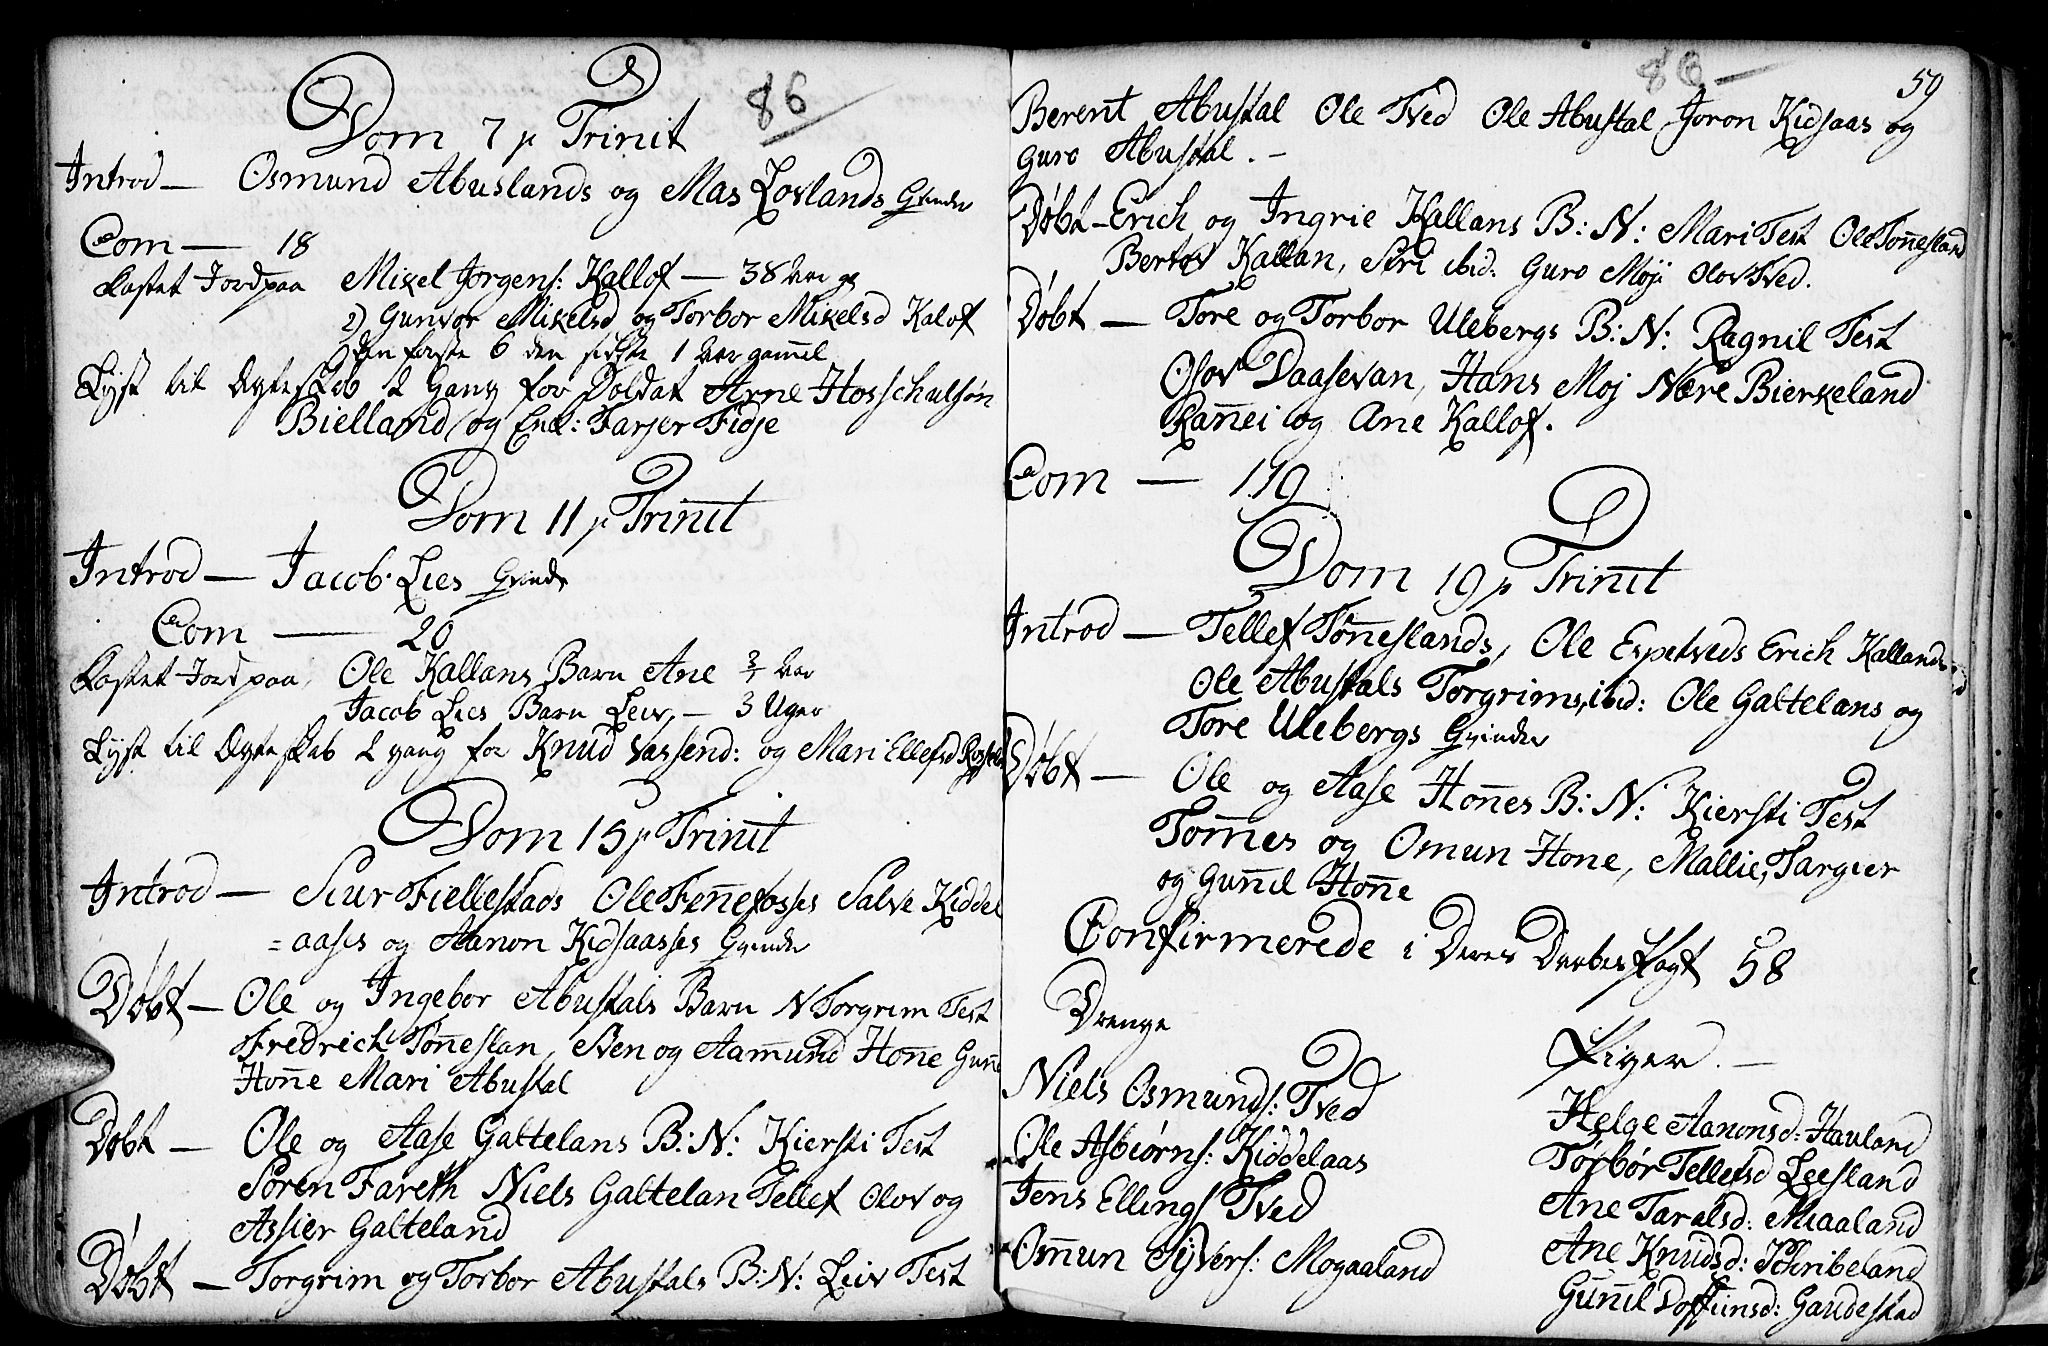 86
Dom 7 p Trinit
Introd — Osmund Abuslands og Mas Lovlands Qvinder
Com — 18
Kastet Jord paa Mikel Jorgens: Kallof — 38 Aar
2) Gunvor Mikelsd og Torbor Mikelsd Kalof
den første 6 den sidste 1 Aar gamel
Lyst til Ægteskab 1 Gang for Soldat Arne Hosschulsøn
Bielland og Enk: Tarjer Fidje
Dom 11 p Trinit
Introd — Jacob Lies Qvinde
Com — 20
Kastet Jord paa Ole Kallans Barn Ane Aar
Jacob Lies Barn Leiv — 3 Uger
Lyst til Ægteskab 1 gang for Knud Vassend: og Mari Ellefsd
Dom 15 p Trinit
Introd — Siur Fiellestads Ole Fennefosses Salve Kiddel
=aases og Aanon Kidsaasses Qvinder
Døbt — Ole og Ingebor Abustals Barn N Torgrim Test
Fredrich Tønneslan, Sven og Aamund Honne Gunn
Honne Mari Abustal
Døbt — Ole og Aase Galtelans B: N: Kiersti Test
Søren Fareth Niels Galtelan Tellef Olov og
Assier Galteland
Døbt — Torgrim og Torbor Abustals B: N: Leiv Test
86 —
59
Berent Abustal Ole Tved Ole Abustal Joron Kidsaas og
Guro Abustal. —
Døbt — Erich og Ingrie Kallans B: N: Mari Test Ole Tønnesland
Bertov Kallan, Siri ibid: Guro Moji Olov Tved.
Døbt — Tore og Torbor Ulebergs B: N: Ragnil Test
Olov Daasevan, Hans Moj Nære Bierkeland
Rannei og Ane Kallof.
Com — 119
Dom 19 p Trinit
Introd — Tellef Tønneslands, Ole Espetveds Erich Kallands
Ole Abustals Torgrims, ibid: Ole Galtelans og
Tore Ulebergs Qvinder
Døbt — Ole og Aase Honnes B: N: Kiersti Test
Tommes og Omun Hone, Mallie, Targier
og Gunnil Honne
Confirmerede i Deres Daabes Pagt 58
Drenge
Piger. —
Niels Osmunds: Tved
Helge Aanonsd: Hauland
Ole Asbiørns: Kiddelaas
Torbør Tellefsd Leesland
Jens Ellings Tved
Ane Taralsd: Miaaland
Ommun Syvers: Mogaaland
Ane Knudsd: Schribeland
Gunnil Dosfunsd: Gaudestad